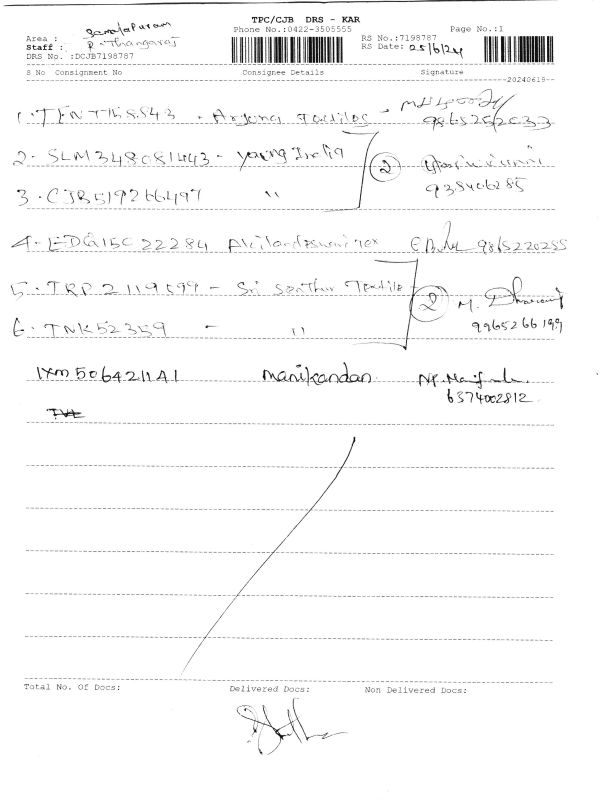 TPC/CJB DRS - KAR
Phone No.:0422-3505555 Page No.:1
Area : Samalapuram
Staff : P. Thangaraj
RS No.:7198787
RS Date: 25/6/24
DRS No. :DCJB7198787
S No Consignment No Consignee Details Signature
20240619
1. - Arjuna Textiles - 9865252033
2. SLM348081443 - Young India 2
3. CJB519266497 " 938406285
4. EDG15C22284 9865220255
5. TRP2119599 - Sri Senthur Textile 2 M.
6. TNK52359 - " 9965266199
IXM5064211A1 Manikandan
6374002812
TVL
Total No. Of Docs: Delivered Docs: Non Delivered Docs: